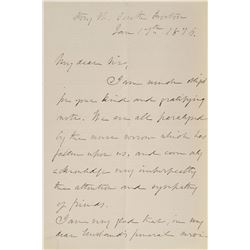 South Boston
Jan 17th 1876.
My dear Sir,
I am much obliged
for your kind and gratifying
note. We are all paralyzed
by the sorrow which has
fallen upon us, and can only
acknowledge very imperfectly
the attention and sympathy
of friends.
I am very glad that, in my
dear husband's funeral